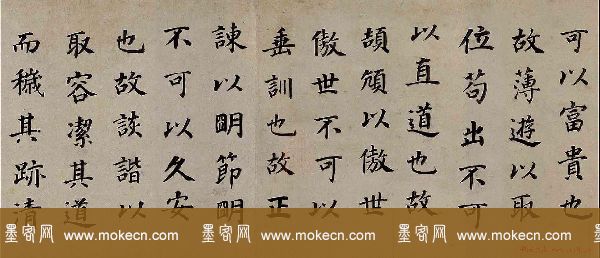 可以富貴也
故薄遊以取
位苟出不可
以直道也故
頡頏以傲世
傲世不可以
垂訓也故正
諫以明節明
不可以久安
也故談諧以
取容潔其道
而穢其跡清
墨客网 www.mokecn.com 墨客网 www.mokecn.com 墨客网 www.mokecn.com